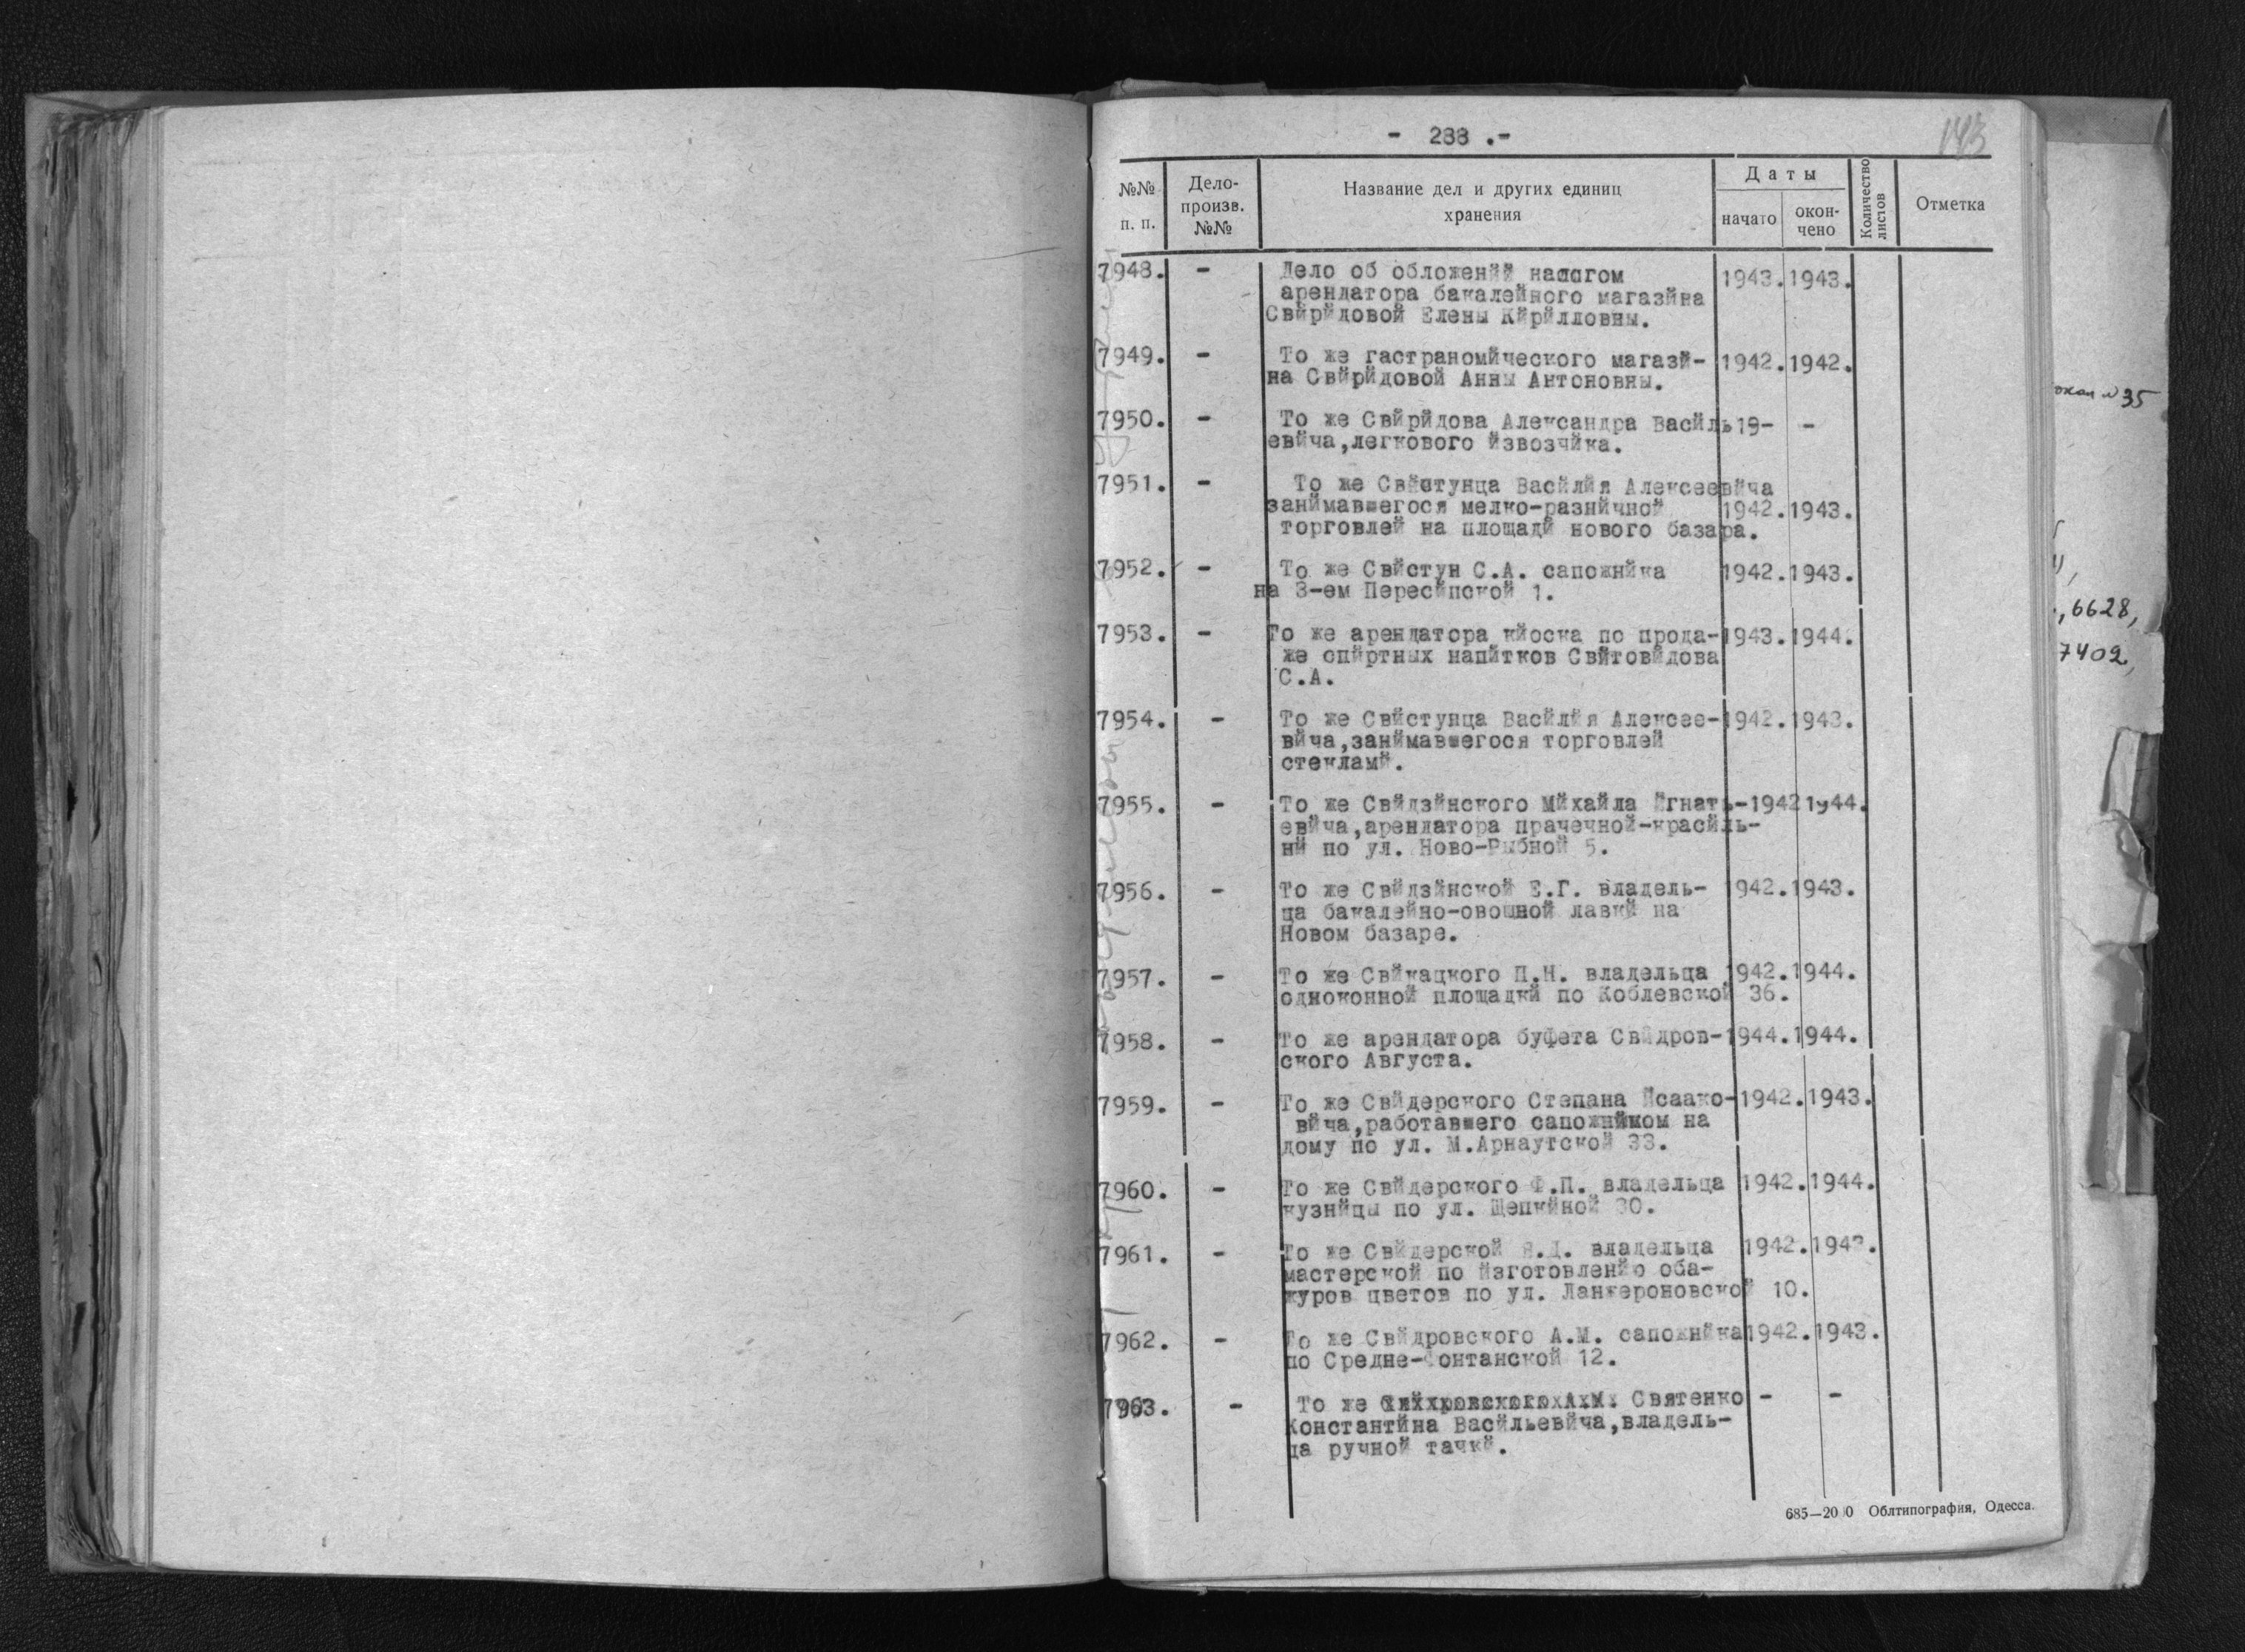 - 288 .-
143
№№ п. п.
Дело-произв. №№
Название дел и других единиц хранения
Даты
начато
окон-чено
Количество листов
Отметка
7948. - Дело об обложений налогом 1943. 1943.
арендатора бакалейного магазйна
Свйрйдовой Елены Кйрйлловны.
7949. - То же гастраномйческого магазй- 1942. 1942.
на Свйрйдовой Анны Антоновны.
7950. - То же Свйрйдова Александра Васйль 19- -
евйча,легкового йзвозчйка.
7951. - То же Свйстунца Васйлйя Алексеевйча
занймавшегося мелко-разнйчной 1942. 1943.
торговлей на площадй нового базара.
7952. - То же Свйстун С.А. сапожнйка 1942. 1943.
на 3-ем Пересйпской 1.
7953. - То же арендатора кйоска по прода- 1943. 1944.
же спйртных напйтков Свйтовйдова
С.А.
7954. - То же Свйстунца Васйлйя Алексее- 1942. 1943.
вйча,занймавшегося торговлей
стекламй.
7955. - То же Свйдзйнского Мйхайла Йгнать- 1942 1944.
евйча,арендатора прачечной-красйль-
нй по ул. Ново-Рыбной 5.
7956. - То же Свйдзйнской Е.Г. владель- 1942. 1943.
ца бакалейно-овощной лавкй на
Новом базаре.
7957. - То же Свйкацкого П.Н. владельца 1942. 1944.
одноконной площадкй по Коблевской 36.
7958. - То же арендатора буфета Свйдров- 1944. 1944.
ского Августа.
7959. - То же Свйдерского Степана Йсаако- 1942. 1943.
вйча,работавшего сапожнйком на
дому по ул. М.Арнаутской 33.
7960. - То же Свйдерского Ф.П. владельца 1942. 1944.
кузнйцы по ул. Щепкйной 30.
7961. - То же Свйдерской владельца 1942.
мастерской по йзготовленйю оба-
журов цветов по ул. Ланжероновской 10.
7962. - То же Свйдровского А.М. сапожнйка 1942. 1943.
по Средне-Фонтанской 12.
7963. - То же Святенко - -
Константйна Васйльевйча,владель-
ца ручной тачкй.
685—2000 Облтипография, Одесса.
№ 35
6628,
7402,